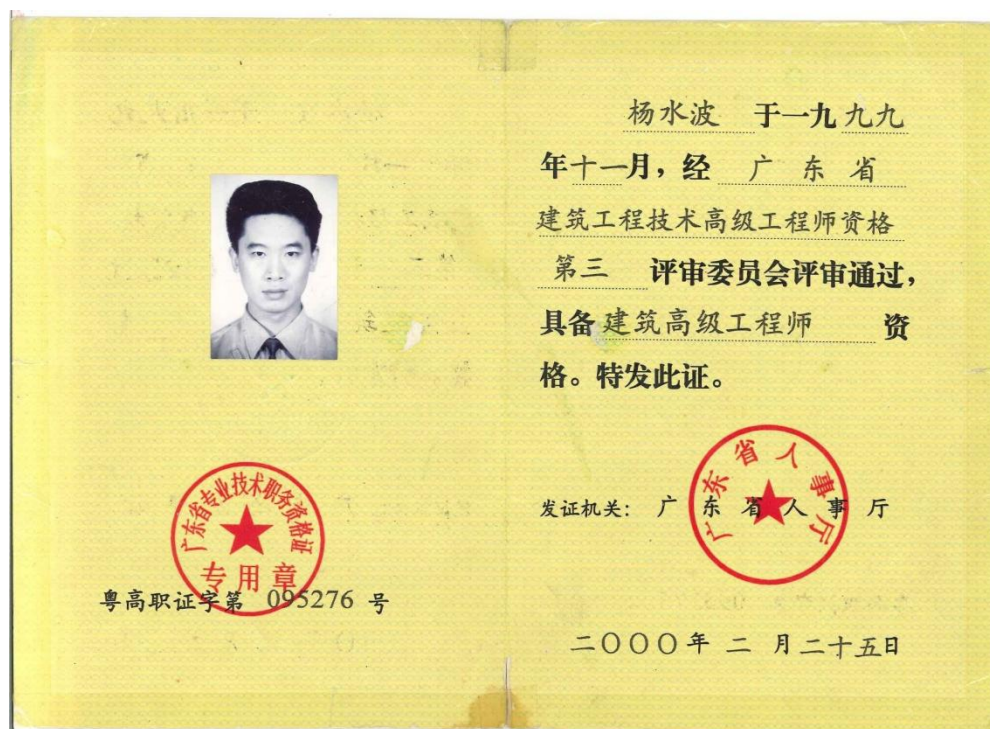 广东省专业技术职务资格证
专用章
粤高职证字第 095276 号
杨水波 于一九九九
年十一月，经 广东省
建筑工程技术高级工程师资格
第三 评审委员会评审通过，
具备建筑高级工程师 资
格。特发此证。
广东省人事厅
发证机关：广东省人事厅
二〇〇〇年二月二十五日